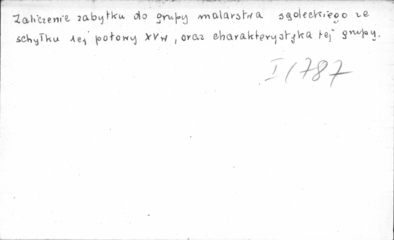 Zaliczenie zabytku do grupy malarstwa sądeckiego ze
schyłku 1ej połowy XV w, oraz charakterystyka tej grupy.
I/787